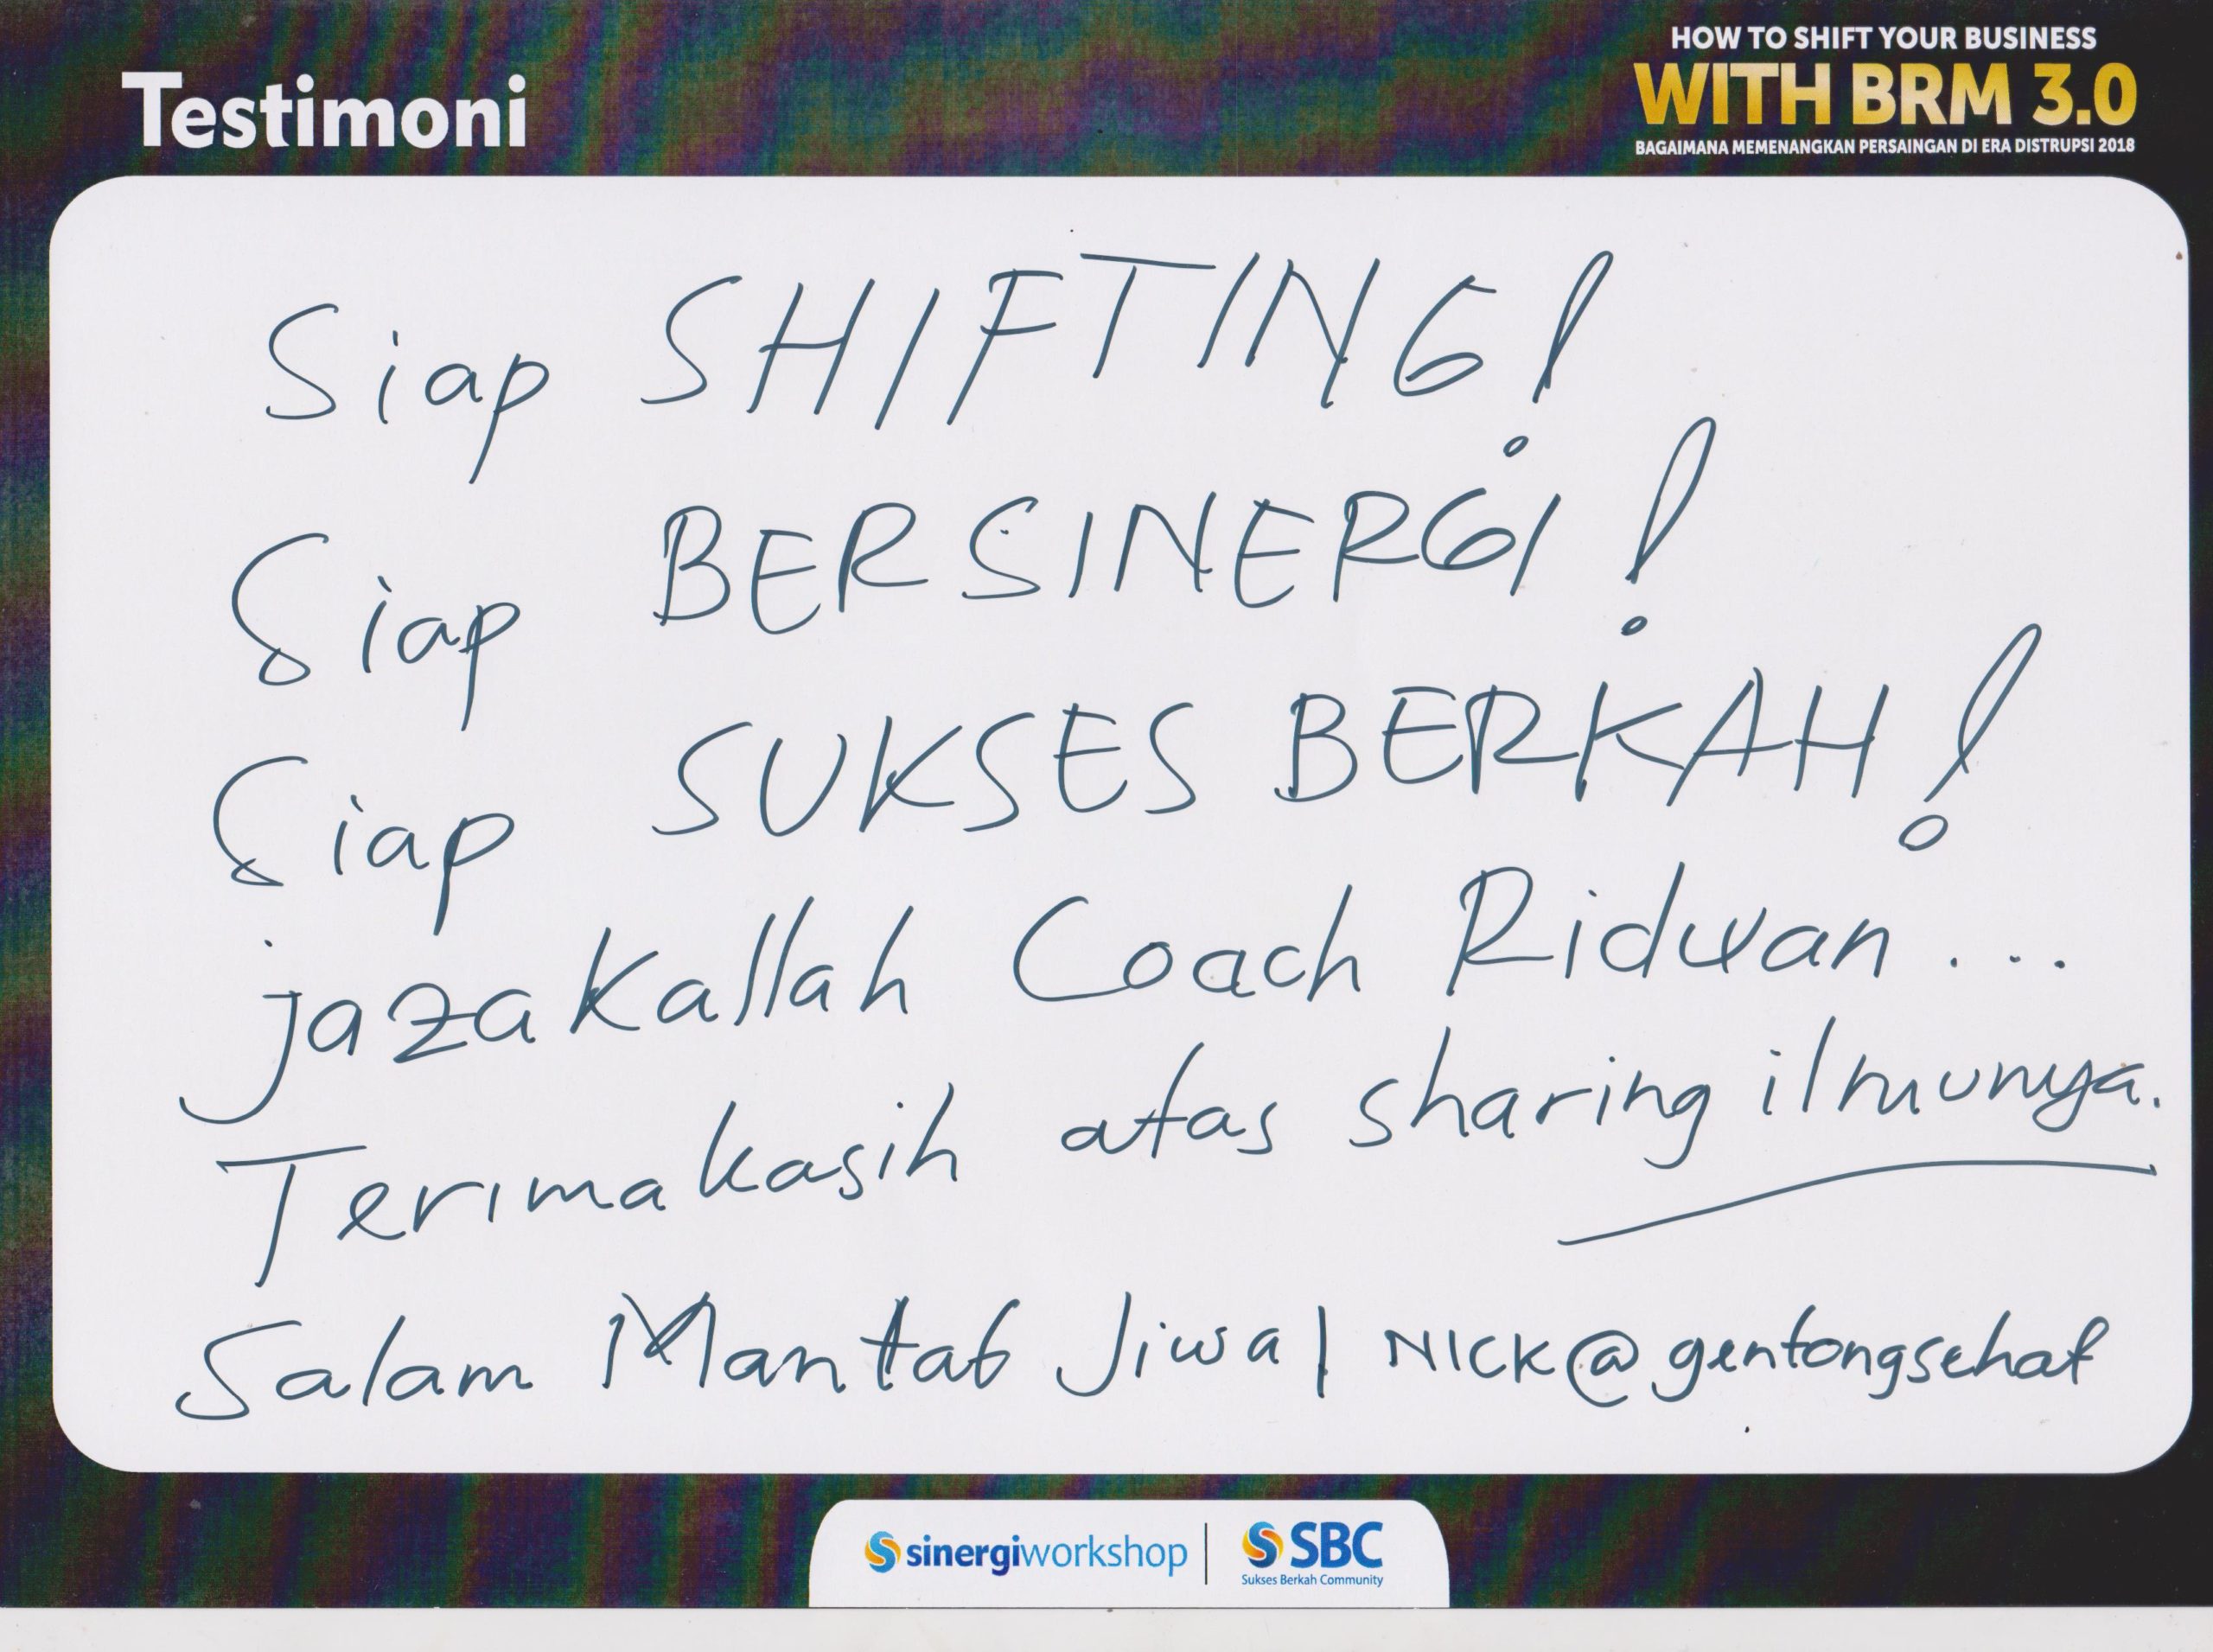 Testimoni
HOW TO SHIFT YOUR BUSINESS
WITH BRM 3.0
BAGAIMANA MEMENANGKAN PERSAINGAN DI ERA DISTRUPSI 2018
Siap SHIFTING!
Siap BERSINERGI!
Siap SUKSES BERKAH!
jazakallah Coach Ridwan...
Terimakasih atas sharing ilmunya.
Salam Mantab Jiwa | NICK@gentongsehat
sinergiworkshop
SBC
Sukses Berkah Community